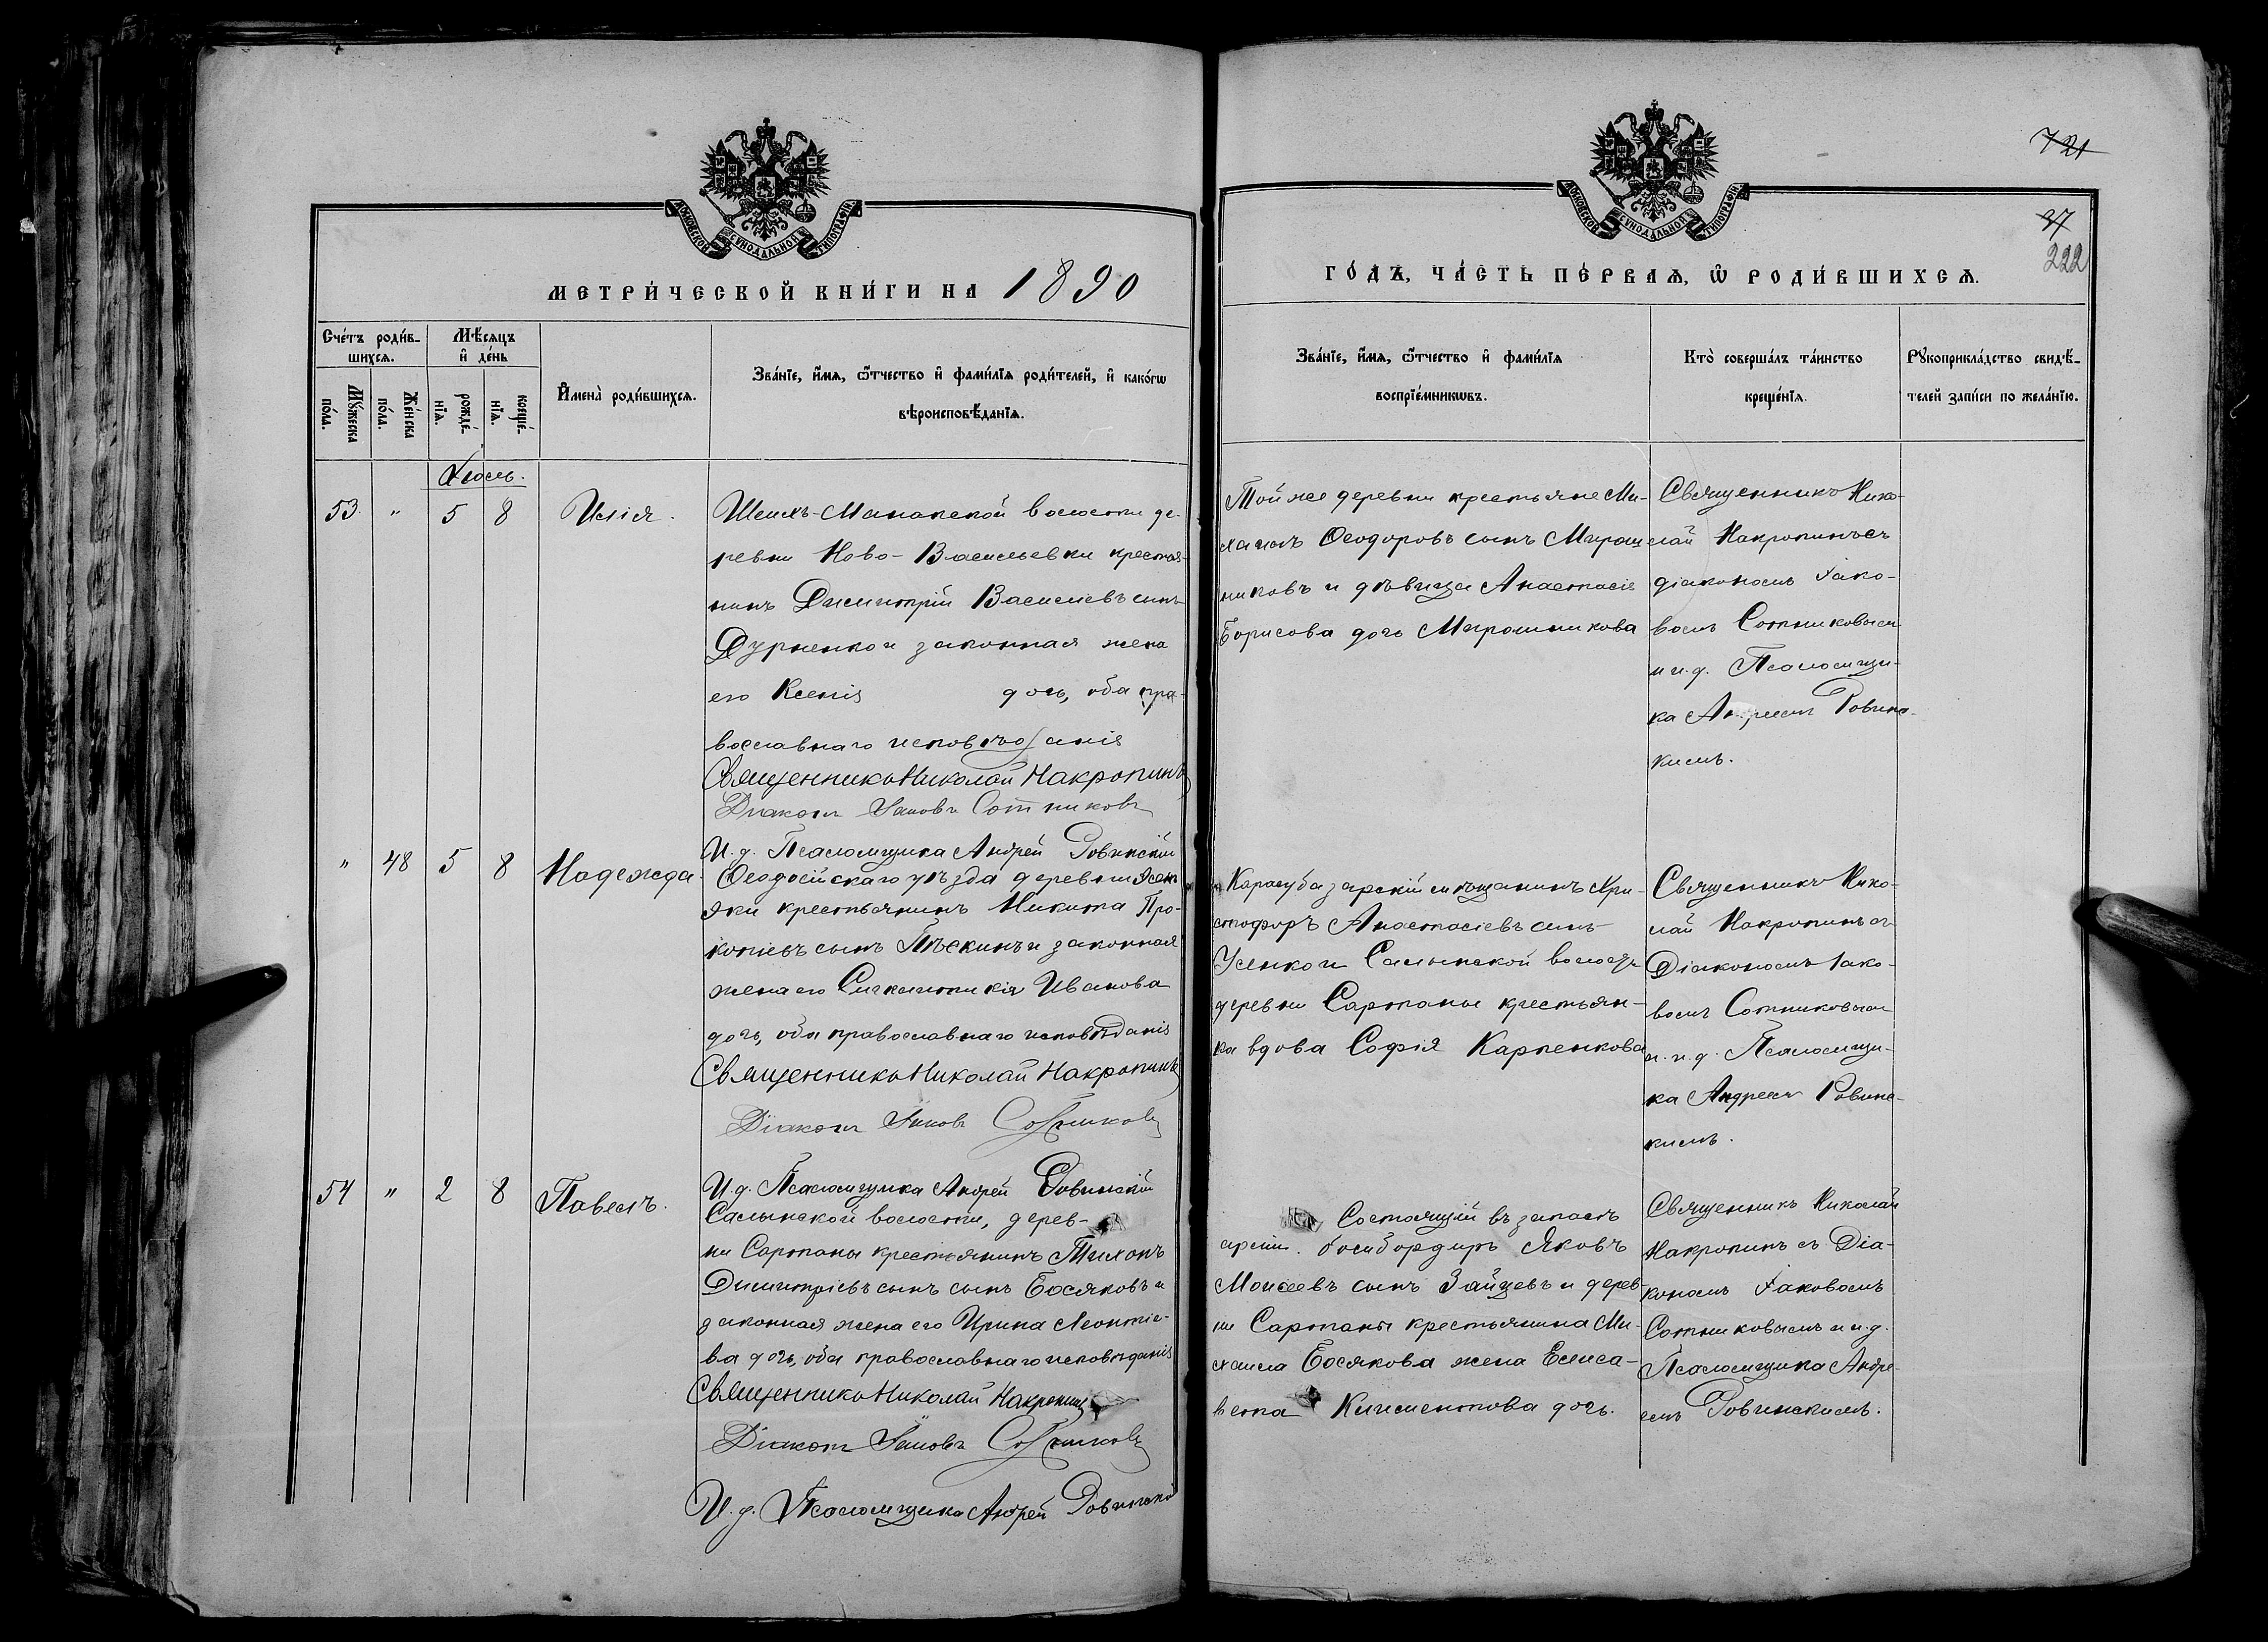 МОСКОВСКОЙ СѴНОДАЛЬНОЙ ТИПОГРАФІИ
МЕТРИ́ЧЕСКОЙ КНИ́ГИ НА 1890
Сче́тъ роди́в-
шихсѧ.
Мꙋ́жеска
по́ла.
Же́нска
по́ла.
Мѣ́сѧцъ
и҆ де́нь
рожде́-
нїѧ.
креще́-
нїѧ.
И҆мена̀ роди́вшихсѧ.
Зва́нїе, и҆́мѧ, ѻ҆́тчество и҆ фами́лїѧ роди́телей, и҆ како́гѡ
вѣроисповѣ́данїѧ.
Іюль.
53 " 5 8 Илія.
Шеихъ-Манакской волости де-
ревни Ново-Васильевки крестья-
нинъ Димитрій Васильевъ сынъ
Дурненко и законная жена
его Ксенія дочь, оба пра-
вославнаго исповѣданія
Священникъ Николай Накропинъ
Діаконъ Іаковъ Сотниковъ
И. д. Псаломщика Андрей Ровинскій
" 48 5 8 Надежда.
Ѳеодосійскаго уѣзда деревни
крестьянинъ Никита Про-
копіевъ сынъ Пѣскинъ и законная
жена его Синклитикія Иванова
дочь, оба православнаго исповѣданія
Священникъ Николай Накропинъ
Діаконъ Іаковъ Сотниковъ
И. д. Псаломщика Андрей Ровинскій
54 " 2 8 Павелъ.
Салынской волости, дерев-
ни Сартаны крестьянинъ Тихонъ
Димитріевъ сынъ сынъ Босяковъ и
законная жена его Ирина Леонтіе-
ва дочь, оба православнаго исповѣданія
Священникъ Николай Накропинъ
Діаконъ Іаковъ Сотниковъ
И. д. Псаломщика Андрей Ровинскій
721
37
222
МОСКОВСКОЙ СѴНОДАЛЬНОЙ ТИПОГРАФІИ
ГО́ДЪ, ЧА́СТЬ ПЕ́РВАѦ, Ѡ҆ РОДИ́ВШИХСѦ.
Зва́нїе, и҆́мѧ, ѻ҆́тчество и҆ фами́лїѧ
воспрїе́мникѡвъ.
Кто̀ соверша́лъ та́инство
креще́нїѧ.
Рꙋкоприкла́дство свидѣ́-
телей за́писи по жела́нїю.
Той же деревни крестьяне Ми-
хаилъ Ѳеодоровъ сынъ Мирош
никовъ и дѣвица Анастасія
Борисова дочь Мирошникова
Священникъ Нико-
лай Накропинъ съ
діакономъ Іако-
вомъ Сотниковымъ
и и.д. Псаломщи-
ка Андреемъ Ровинс-
кимъ.
Карасубазарскій мѣщанинъ Хри-
стофоръ Анастасіевъ сынъ
Усенко и Салынской волости
деревни Сартаны крестьян-
ка вдова Софія Карпенкова
Священникъ Нико-
лай Накропинъ съ
Діакономъ Іако-
вомъ Сотниковымъ
и и.д. Псаломщи-
ка Андреемъ Ровинс-
кимъ.
Состоящій въ запасѣ
арміи. бомбордиръ Яковъ
Моисеевъ сынъ Зайцевъ и дерев-
ни Сартаны крестьянина Ми-
хаила Босякова жена Елиса-
вета Климентова дочь.
Священникъ Николай
Накропинъ съ Діа-
кономъ Іаковомъ
Сотниковымъ и и.д.
Псаломщика Андре-
емъ Ровинскимъ.